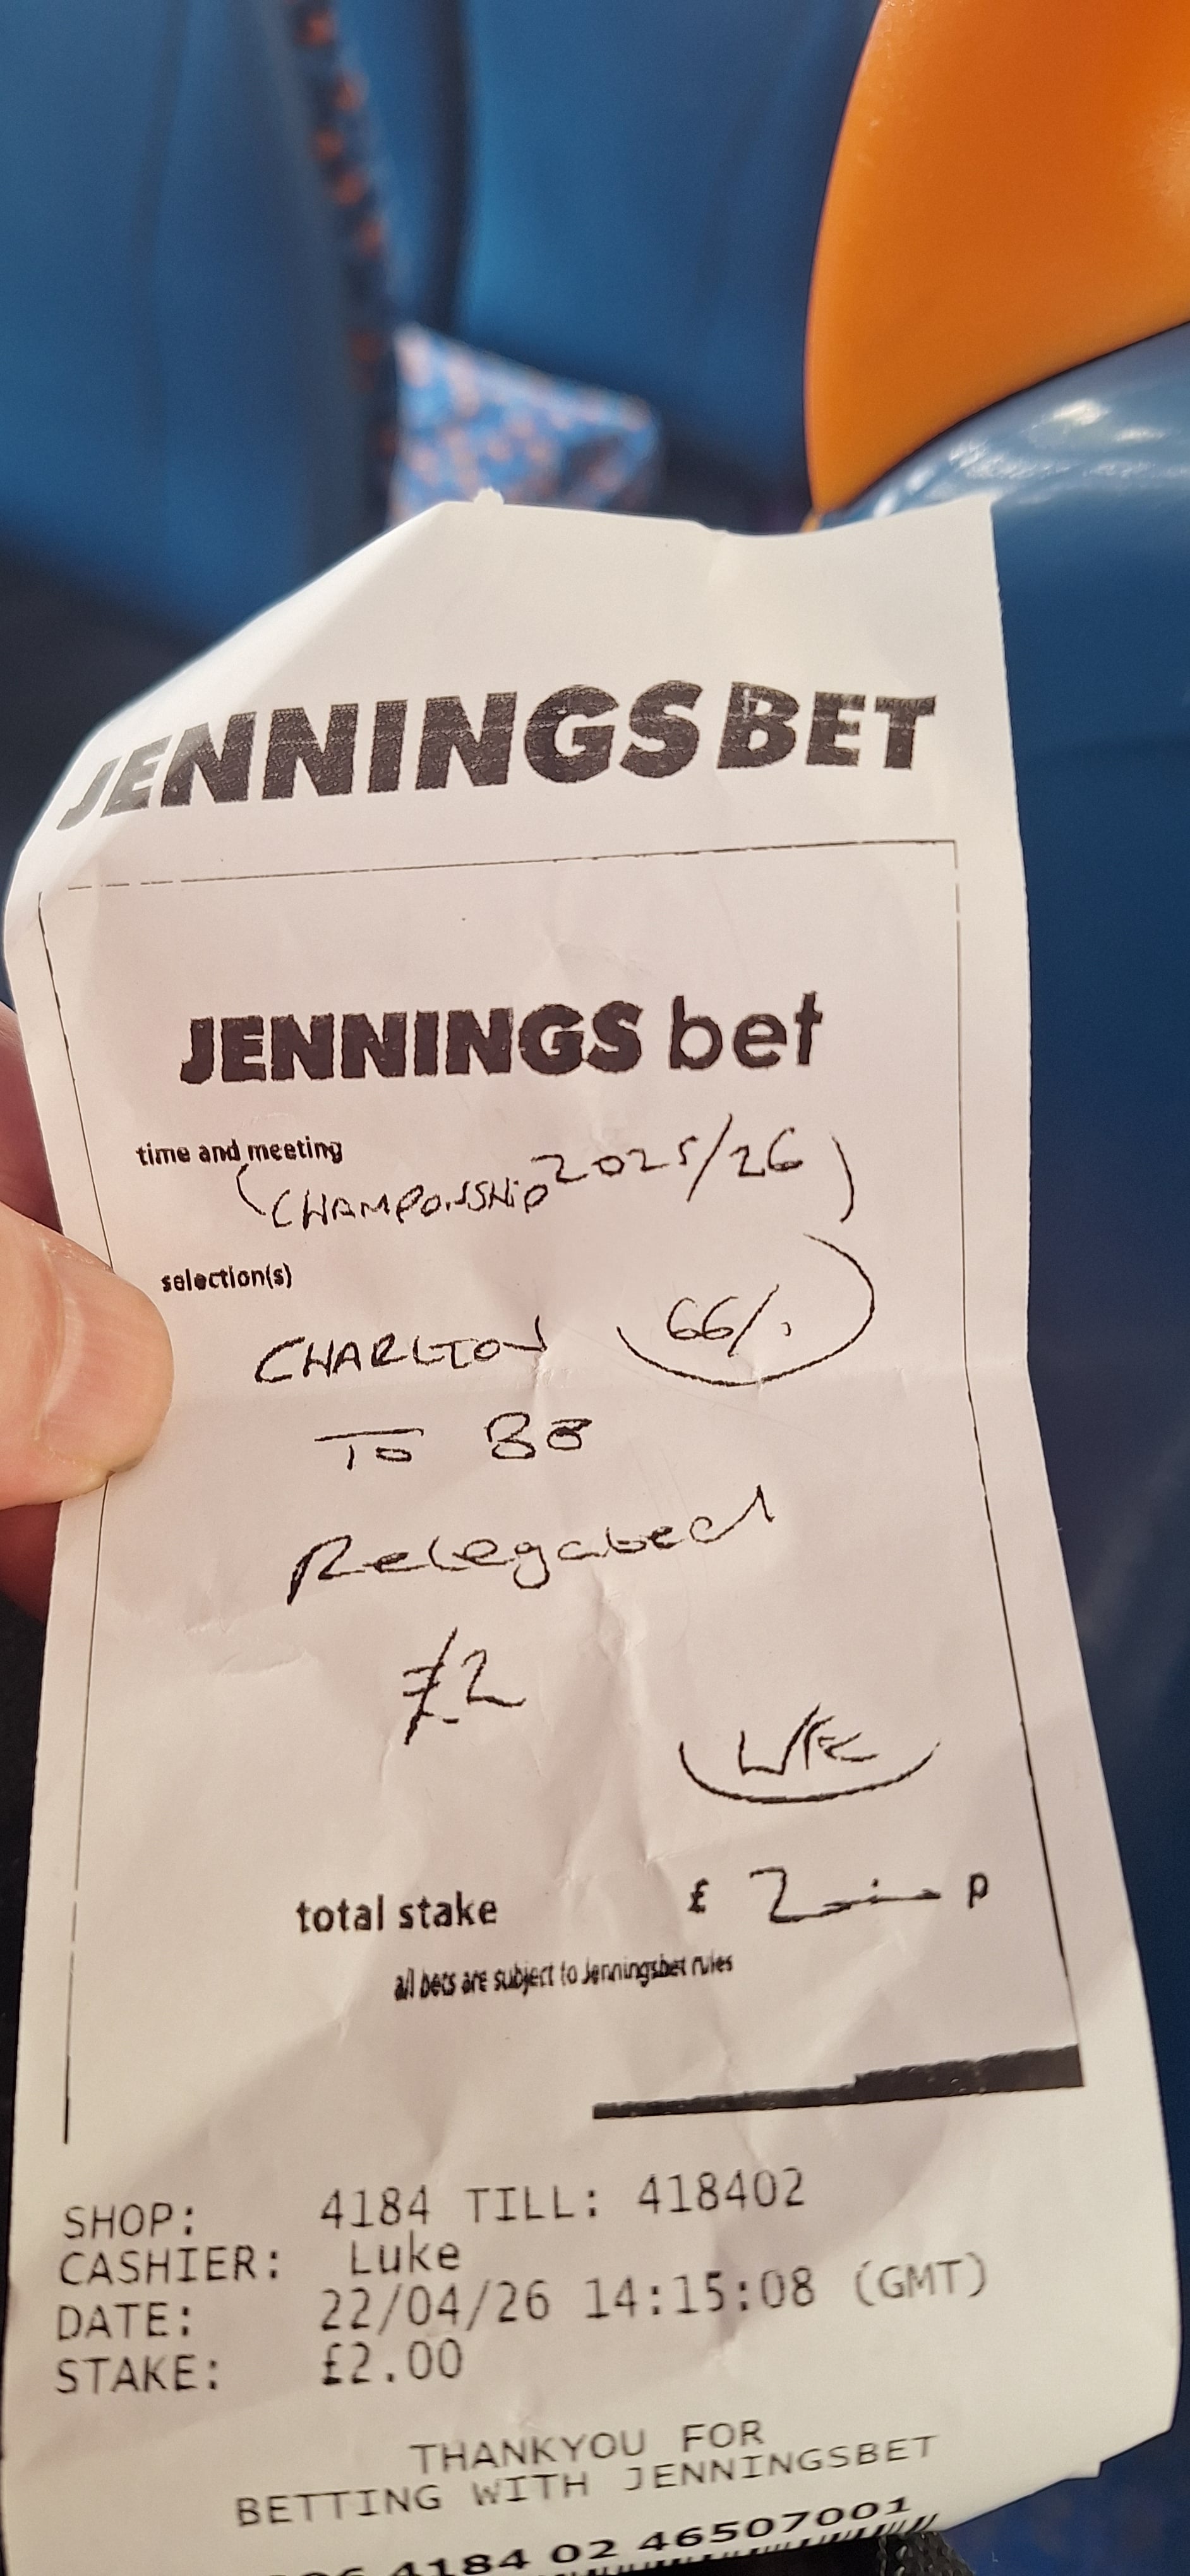 JENNINGSBET
JENNINGS bet
time and meeting
(CHAMPONSHIP 2025/26)
selection(s)
CHARLTON 66/1
TO BE
Relegated
£2
total stake £ 2 p
all bets are subject to Jenningsbet rules
SHOP: 4184 TILL: 418402
CASHIER: Luke
DATE: 22/04/26 14:15:08 (GMT)
STAKE: £2.00
THANKYOU FOR
BETTING WITH JENNINGSBET
4184 02 46507001